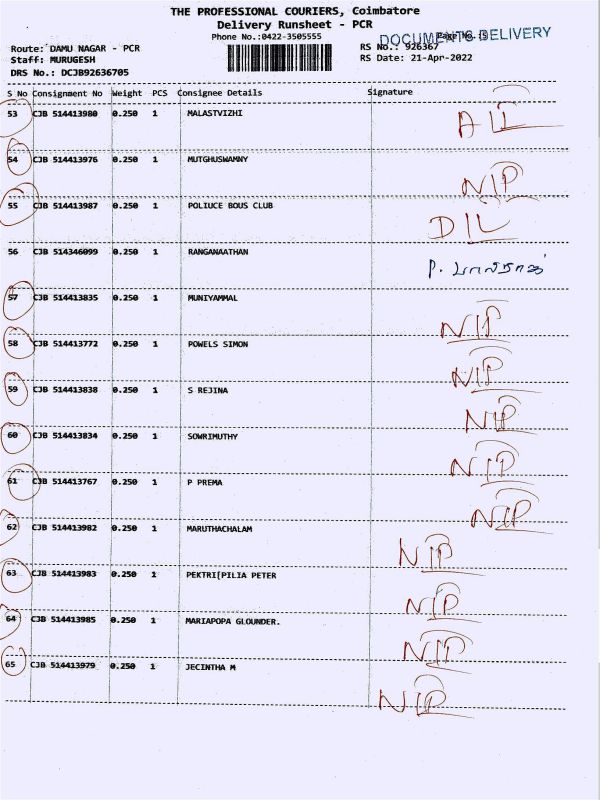 THE PROFESSIONAL COURIERS, Coimbatore
Delivery Runsheet - PCR
DOCUMENTS DELIVERY
Phone No.:0422-3505555
Route: DAMU NAGAR - PCR
RS No.: 926367
Staff: MURUGESH
RS Date: 21-Apr-2022
DRS No.: DCJB92636705
S No Consignment No Weight PCS Consignee Details Signature
53 CJB 514413980 0.250 1 MALASTVIZHI
54 CJB 514413976 0.250 1 MUTGHUSWAMNY NIP
55 CJB 514413987 0.250 1 POLIUCE BOUS CLUB D/L
56 CJB 514346099 0.250 1 RANGANAATHAN P.
57 CJB 514413835 0.250 1 MUNIYAMMAL NIP
58 CJB 514413772 0.250 1 POWELS SIMON NIP
59 CJB 514413838 0.250 1 S REJINA NIP
60 CJB 514413834 0.250 1 SOWRIMUTHY NIP
61 CJB 514413767 0.250 1 P PREMA NIP
62 CJB 514413982 0.250 1 MARUTHACHALAM NIP
63 CJB 514413983 0.250 1 PEKTRI[PILIA PETER NIP
64 CJB 514413985 0.250 1 MARIAPOPA GLOUNDER. NIP
65 CJB 514413979 0.250 1 JECINTHA M NIP